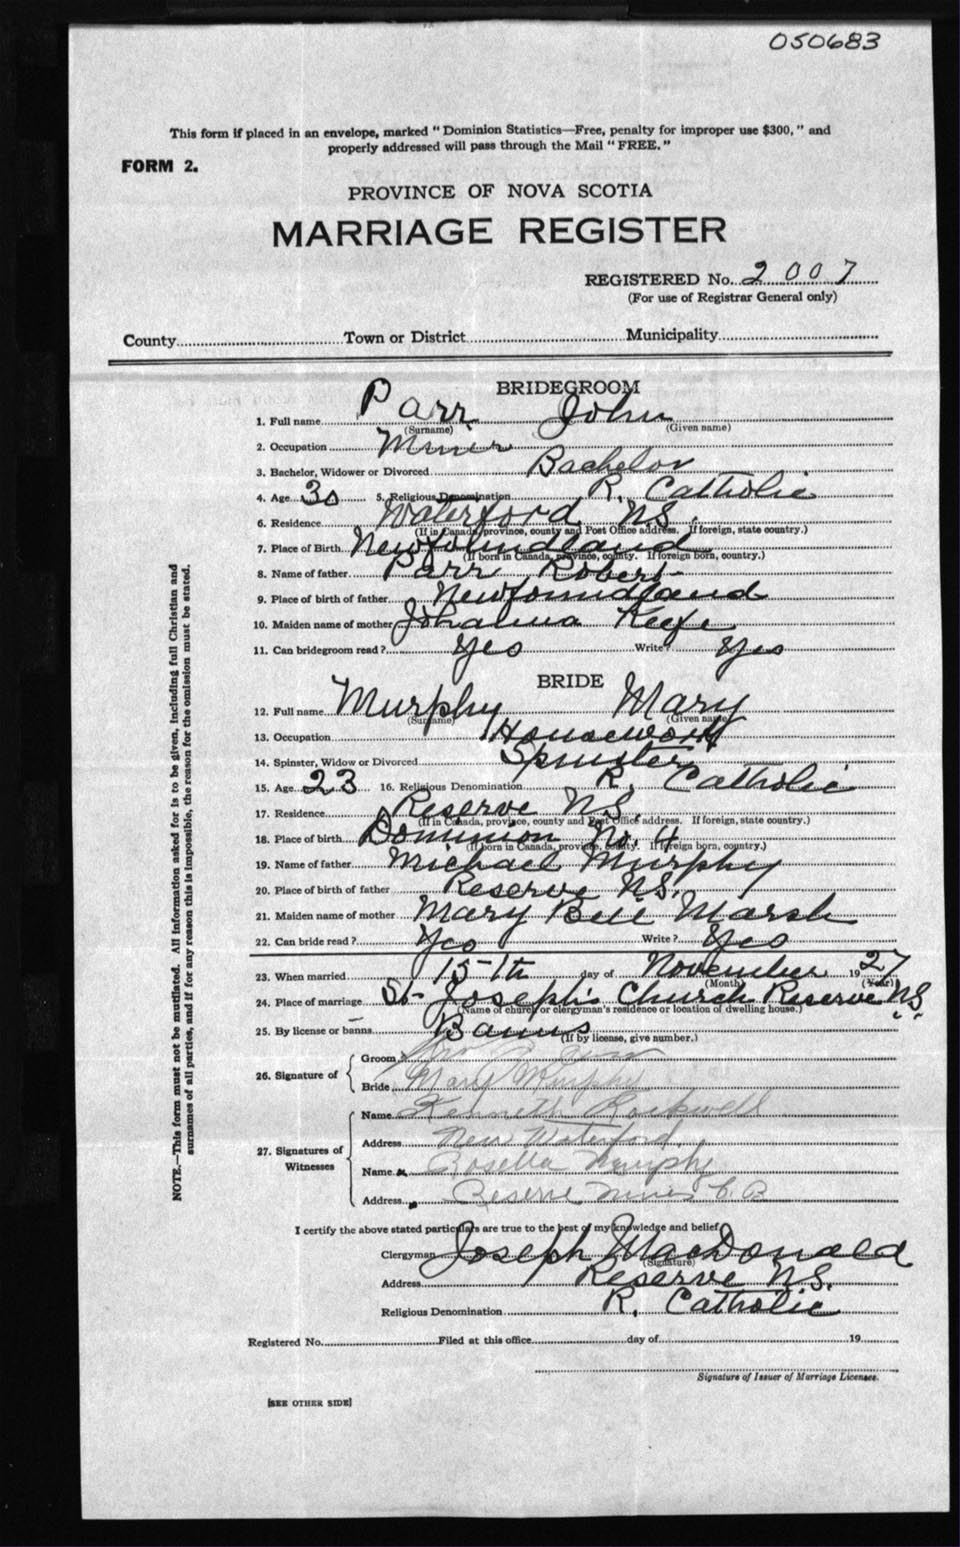 050683
This form if placed in an envelope, marked "Dominion Statistics—Free, penalty for improper use $300," and
properly addressed will pass through the Mail "FREE."
FORM 2.
PROVINCE OF NOVA SCOTIA
MARRIAGE REGISTER
REGISTERED No. 2007
(For use of Registrar General only)
County Town or District Municipality
BRIDEGROOM
1. Full name Parr John
(Surname) (Given name)
2. Occupation Miner
3. Bachelor, Widower or Divorced Bachelor
4. Age 30 5. Religious Denomination R. Catholic
6. Residence Waterford NS.
(If in Canada, province, county and Post Office address. If foreign, state country.)
7. Place of Birth Newfoundland
(If born in Canada, province, county. If foreign born, country.)
8. Name of father Parr Robert
9. Place of birth of father Newfoundland
10. Maiden name of mother Johanna Keefe
11. Can bridegroom read? Yes Write? Yes
BRIDE
12. Full name Murphy Mary
(Surname) (Given name)
13. Occupation Housework
14. Spinster, Widow or Divorced Spinster
15. Age 23 16. Religious Denomination R. Catholic
17. Residence Reserve NS.
(If in Canada, province, county and Post Office address. If foreign, state country.)
18. Place of birth Dominion No. 4
(If born in Canada, province, county. If foreign born, country.)
19. Name of father Michael Murphy
20. Place of birth of father Reserve NS.
21. Maiden name of mother Mary Bell Marsh
22. Can bride read? Yes Write? Yes
23. When married 15th day of November 1927
(Month) (Year)
24. Place of marriage St- Joseph's Church Reserve NS
(Name of church or clergyman's residence or location of dwelling house.)
25. By license or banns Banns
(If by license, give number.)
26. Signature of
Groom
Bride Mary Murphy
27. Signatures of Witnesses
Name Kenneth Rockwell
Address New Waterford
Name Rosella Murphy
Address Reserve Mines C.B
I certify the above stated particulars are true to the best of my knowledge and belief
Clergyman Joseph MacDonald
(Signature)
Address Reserve NS.
Religious Denomination R. Catholic
Registered No. Filed at this office day of 19
Signature of Issuer of Marriage Licenses.
[SEE OTHER SIDE]
NOTE.—This form must not be mutilated. All information asked for is to be given, including full Christian and
surnames of all parties, and if for any reason this is impossible, the reason for the omission must be stated.